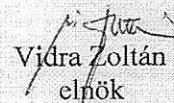 Vidra Zoltán
elnök